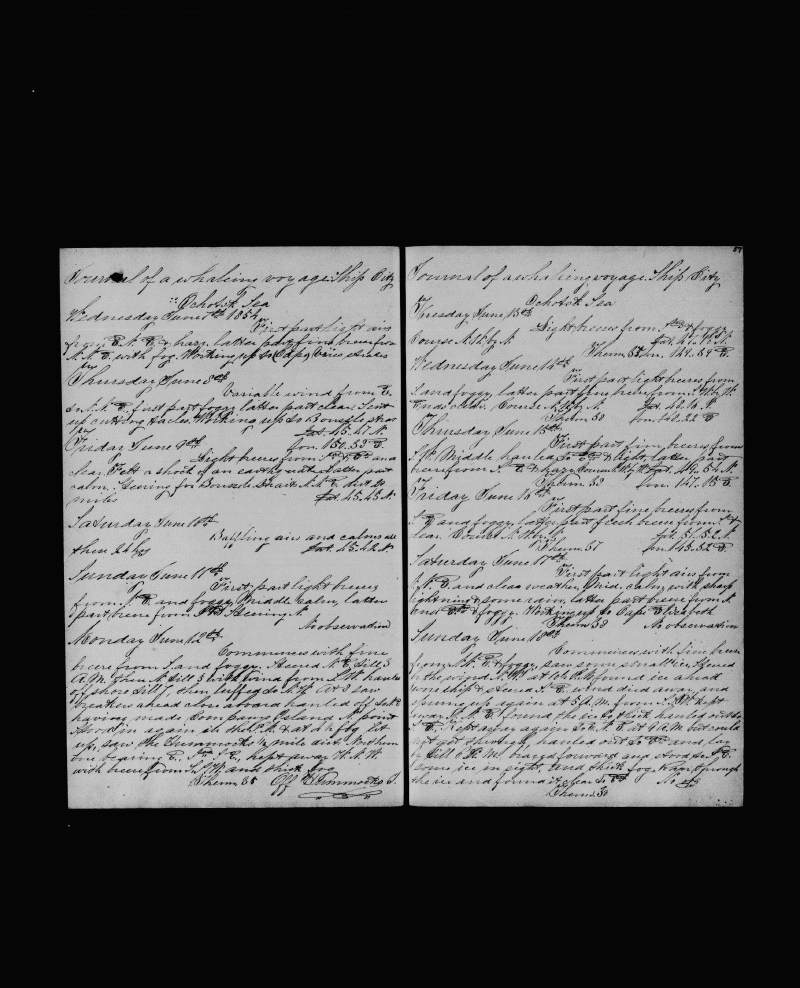 Journal of a whaleing voyage Ship City
Ochotsk Sea
Wednesday June 7th 1854
First part light airs
from E.N.E. & hazy. latter part fine breeze from
N.N.E. with fog. Working up to Cape
Thursday June 8th
Variable wind from E.
to N.N.E. first part foggy latter part clear. Sent
up cutting tacles. Working up to Boussole strait
Lat. 45.47 N.
Friday June 9th Lon. 150.53 E.
Light breeze from and
clear. Felt a shock of an earthquake latter part
calm. Steering for Boussole Straits N.N.E. dist 40
miles Lat. 45.43 N
Saturday June 10th
Baffling airs and calms all
these 24 hrs Lat. 45.42 N
Sunday June 11th
First part light breeze
from and foggy. Middle calm, latter
part breeze from Steering N.
No observation
Monday June 12th
Commences with fine
breeze from S. and foggy. Steered till 3
A.M. then N. till 5 with wind from hauled
off shore till 7, then luffed to N.W. at 8 saw
breakers ahead close aboard hauled off
having made Company Island N. point
Stood in again in the P.M. & at 4 ½ fog lit
up, saw the Hummocks ½ mile dist. Northern
one bearing kept away W.N.W.
with breeze from and thick fog
Therm 35 Off Hummocks I.
57
Journal of a whaling voyage Ship City
Ochotsk Sea
Tuesday June 13th
Light breeze from & foggy
Course N.W. by N. Lat. 47.16 N.
Therm 37 Lon. 149.59 E
Wednesday June 14th
First part light breeze from
S. and foggy, latter part fine breeze from
Ends clear. Course N.W. by N. Lat. 48.16 N.
Therm 38 Lon. 148.22 E
Thursday June 15th
First part fine breeze from
S.W. Middle hauled to & light, latter part
breeze from & hazy Course N.W. by N Lat. 49.54 N.
Therm 38 Lon. 147.15 E
Friday June 16th
First part fine breeze from
and foggy, latter part fresh breeze from &
clear. Course N.W. by N. Lat. 51.52 N.
Therm 37 Lon. 145.32 E
Saturday June 17th
First part light airs from
and clear weather, Mid. calm, with sharp
lightning & some rain, latter part breeze from N.
and & foggy. Working up to Cape Elizabeth
Therm 38 No observation
Sunday June 18th
Commences with fine breeze
from & foggy, saw some small ice. Steered
by the wind at 10 A.M. found ice ahead
wore ship & steered wind died away and
sprung up again at 3 P.M. from kept
away found the ice to thick, hauled out to
kept away again to at 9 A.M. but could
not get through, hauled out to and lay
by till 6 P.M. braced forward and stood
some ice in sight, and thick fog. Ran through
the ice and found it clear to No obs
Therm 36